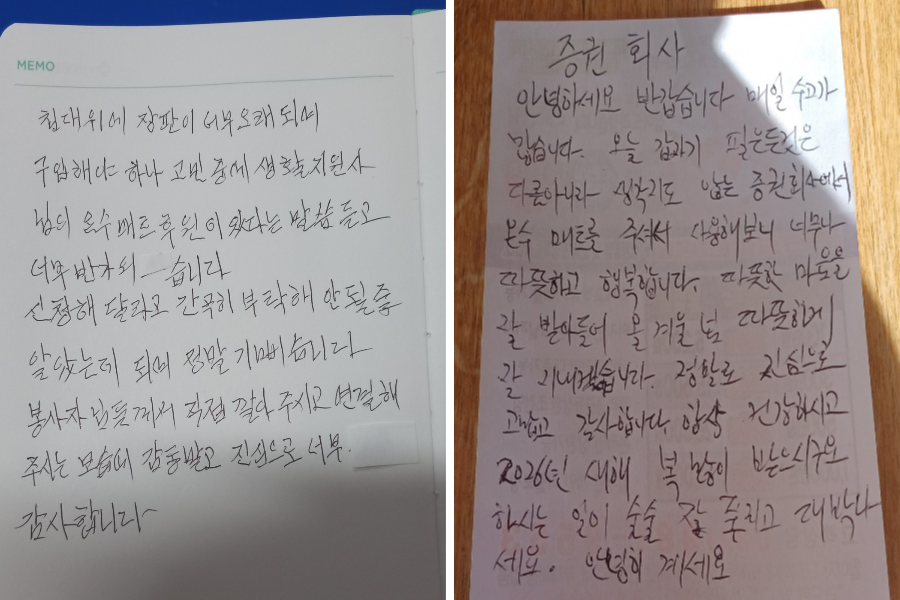 MEMO
침대위에 장판이 너무 오래 되어
구입해야 하나 고민 중에 생활지원사
님의 온수매트 후원이 있다는 말씀 듣고
너무 반가워 습니다
신청해 달라고 간곡히 부탁해 안될줄
알았는데 되어 정말 기뻐습니다
봉사자님들께서 직접 깔아 주시고 연결해
주시는 모습에 감동받고 진심으로 너무.
감사합니다~
증권 회사
안녕하세요 반갑습니다 매일 수고가
많습니다. 오늘 갑자기 필을든것은
다름아니라 생각지도 않는 증권회사에서
온수 매트를 주셔서 사용해보니 너무나
따뜻하고 행복합니다. 따뜻한 마음을
잘 받아들여 올 겨울 넘 따뜻하게
잘 지내겠습니다. 정말로 진심으로
고맙고 감사합니다 항상 건강하시고
2026년 새해 복 많이 받으시구요
하시는 일이 술술 잘 풀리고 대박나
세요. 안녕히 계세요